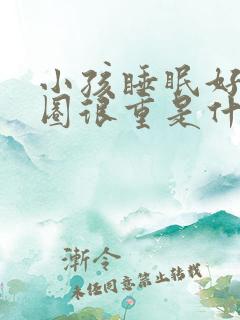 小孩睡眠好
圈很重是什
漸令
未经同意禁止转载